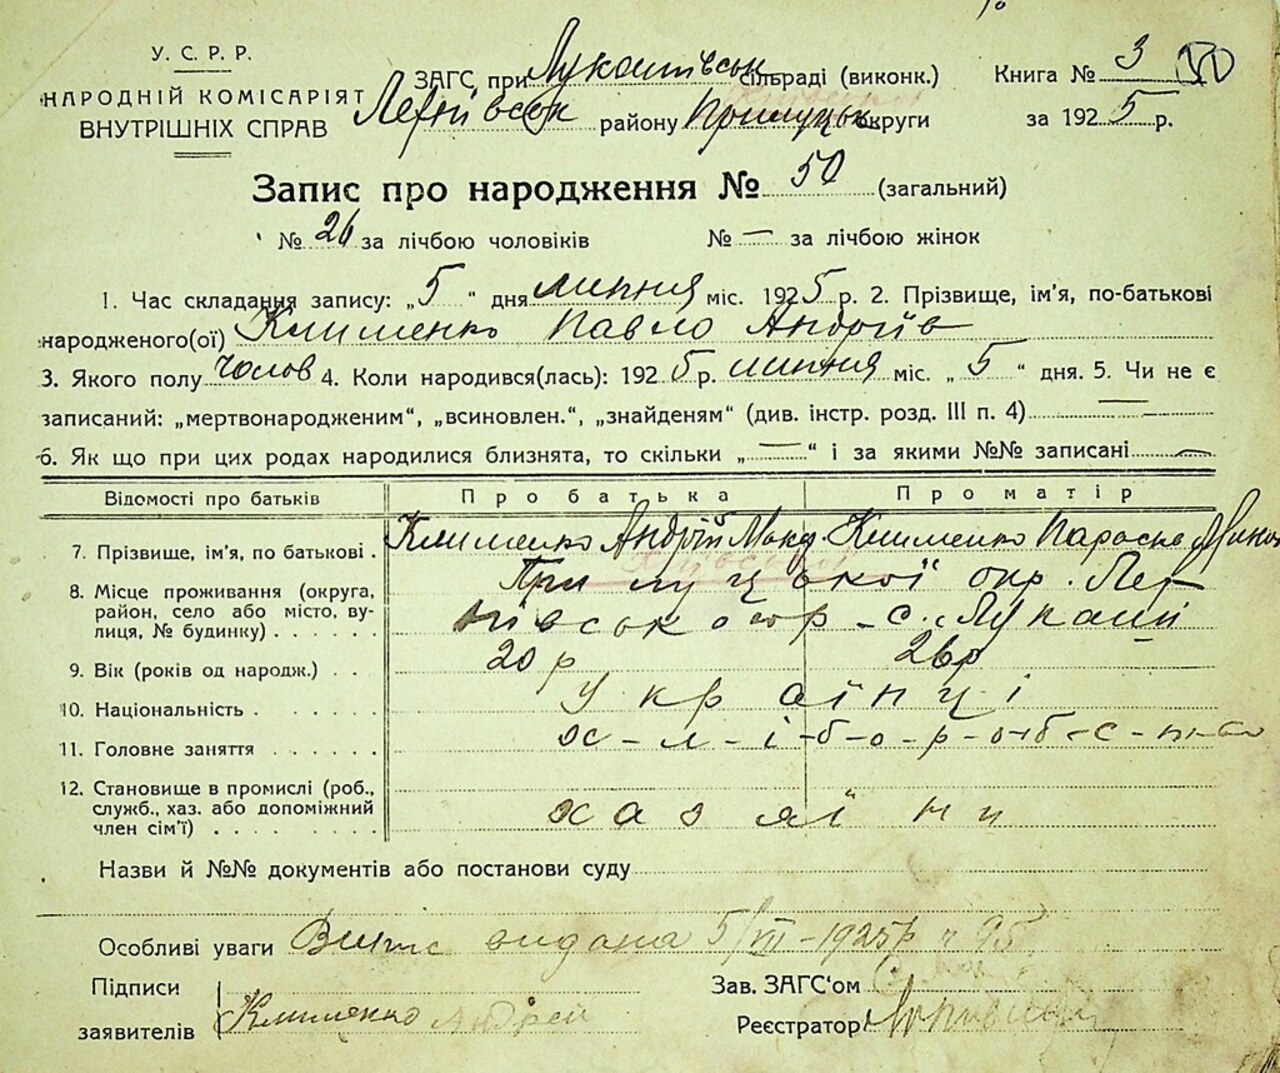 У. С. Р. Р.
НАРОДНІЙ КОМІСАРІЯТ
ВНУТРІШНІХ СПРАВ
ЗАГС при Лукашівськ сільраді (виконк.)
району Прилуцьк округи
Книга № 3 50
за 1925 р.
Запис про народження № 50 (загальний)
№ 26 за лічбою чоловіків № — за лічбою жінок
1. Час складання запису: „5“ дня липня міс. 1925 р. 2. Прізвище, ім'я, по-батькові
народженого(ої) Клименко Павло Андріїв
3. Якого полу чолов 4. Коли народився(лась): 1925 р. липня міс. „5“ дня. 5. Чи не є
записаний: „мертвонародженим“, „всиновлен.“, „знайденям“ (див. інстр. розд. III п. 4) —
6. Як що при цих родах народилися близнята, то скільки „—“ і за якими №№ записані —
Відомості про батьків Про батька Про матір
7. Прізвище, ім'я, по батькові . Клименко Андрій Клименко Параска
8. Місце проживання (округа, район, село або місто, вулиця, № будинку) . . . . . . Прилуцької окр.
с. Лукаші
9. Вік (років од народж.) . . 20 р 26р
10. Національність . . . . . . Українці
11. Головне заняття . . . . . . х-л-і-б-о-р-о-б-с-т-во
12. Становище в промислі (роб., служб., хаз. або допоміжний член сім'ї) . . . . . . . . хазяїни
Назви й №№ документів або постанови суду
Особливі уваги Випис видана 5/VII-1925р № 95
Підписи
заявителів Клименко Андрей
Зав. ЗАГС'ом
Реєстратор